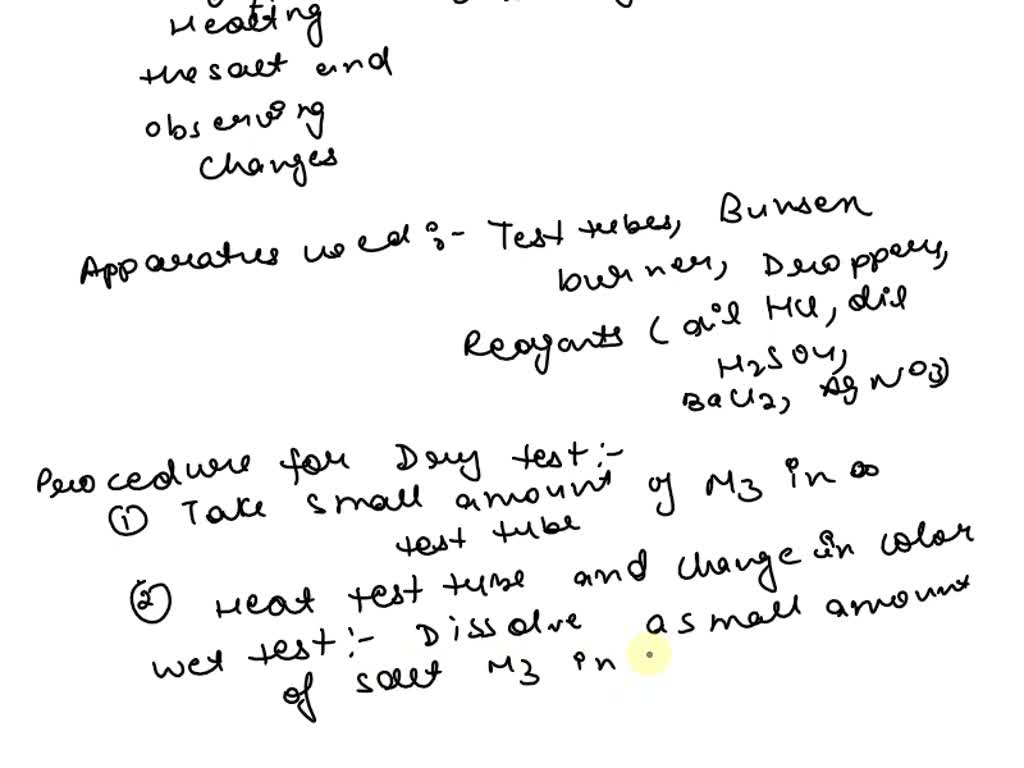 Heating
the salt and
observing
changes
Apparatus used :- Test tubes, Bunsen
burner, Droppers,
Reagants (dil HCl, dil
H2SO4,
BaCl2, AgNO3)
Procedure for Dry test :-
① Take small amount of M3 in a
test tube
② Heat test tube and change in color
wet test :- Dissolve a small amount
of salt M3 in